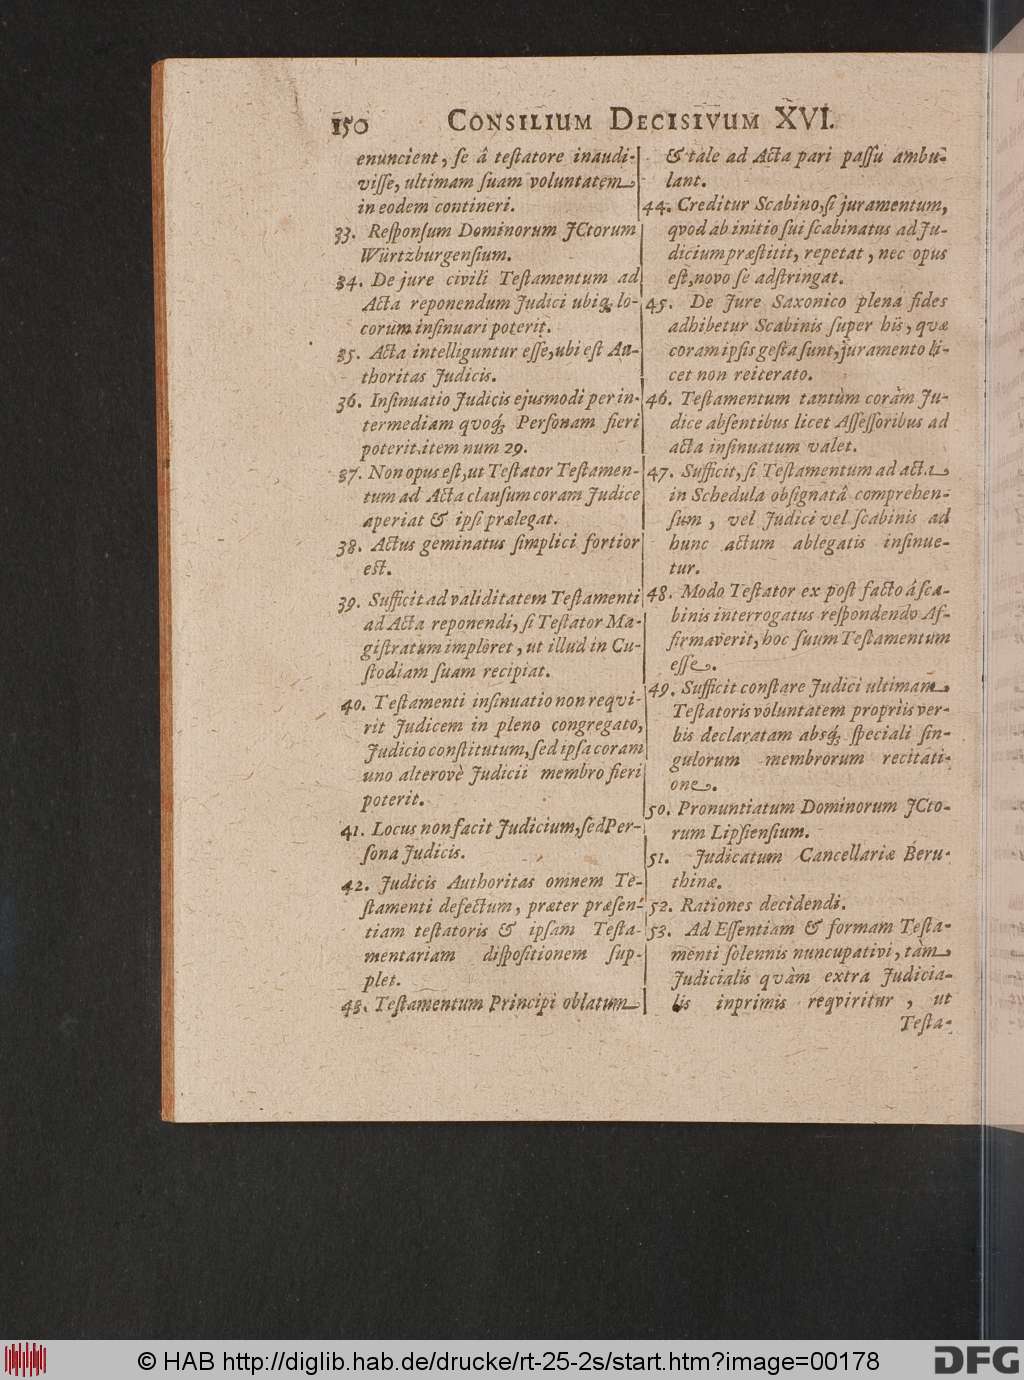 150 CONSILIUM DECISIVUM XVI.
enuncient, ſe â teſtatore inaudi-
viſſe, ultimam ſuam voluntatem
in eodem contineri.
33. Reſponſum Dominorum JCtorum
Würtzburgenſium.
34. De jure civili Teſtamentum ad
Acta reponendum Judici ubiq; lo-
corum inſinuari poterit.
35. Acta intelliguntur eſſe, ubi eſt Au-
thoritas Judicis.
36. Inſinuatio Judicis ejusmodi per in-
termediam quoq; Perſonam fieri
poterit. item num 29.
37. Non opus eſt, ut Teſtator Teſtamen-
tum ad Acta clauſum coram Judice
aperiat & ipſi prælegat.
38. Actus geminatus ſimplici fortior
eſt.
39. Sufficit ad validitatem Teſtamenti
ad Acta reponendi, ſi Teſtator Ma-
giſtratum imploret, ut illud in Cu-
ſtodiam ſuam recipiat.
40. Teſtamenti inſinuatio non reqvi-
rit Judicem in pleno congregato,
Judicio conſtitutum, ſed ipſa coram
uno alterovè Judicii membro fieri
poterit.
41. Locus non facit Judicium, ſed Per-
ſona Judicis.
42. Judicis Authoritas omnem Te-
ſtamenti defectum, præter præſen-
tiam teſtatoris & ipſam Teſta-
mentariam diſpoſitionem ſup-
plet.
43. Teſtamentum Principi oblatum
& tale ad Acta pari paſſu ambu-
lant.
44. Creditur Scabino, ſi juramentum,
qvod ab initio ſui ſcabinatus ad Ju-
dicium præſtitit, repetat, nec opus
eſt, novo ſe adſtringat.
45. De Jure Saxonico plena fides
adhibetur Scabinis ſuper his, quæ
coram ipſis geſta ſunt, juramento li-
cet non reiterato.
46. Teſtamentum tantùm coràm Ju-
dice abſentibus licet Aſſeſſoribus ad
acta inſinuatum valet.
47. Sufficit, ſi Teſtamentum ad acta
in Schedula obſignatâ comprehen-
ſum, vel Judici vel ſcabinis ad
hunc actum ablegatis inſinue-
tur.
48. Modo Teſtator ex poſt facto á ſca-
binis interrogatus reſpondendo Af-
firmaverit, hoc ſuum Teſtamentum
eſſe.
49. Sufficit conſtare Judici ultimam
Teſtatoris voluntatem propriis ver-
bis declaratam absq; ſpeciali ſin-
gulorum membrorum recitati-
one.
50. Pronuntiatum Dominorum JCto-
rum Lipſienſium.
51. Judicatum Cancellariæ Beru-
thinæ.
52. Rationes decidendi.
53. Ad Eſſentiam & formam Teſta-
menti ſolennis nuncupativi, tàm
Judicialis quàm extra Judicia-
lis inprimis reqviritur, ut
Teſta-
© HAB http://diglib.hab.de/drucke/rt-25-2s/start.htm?image=00178
DFG